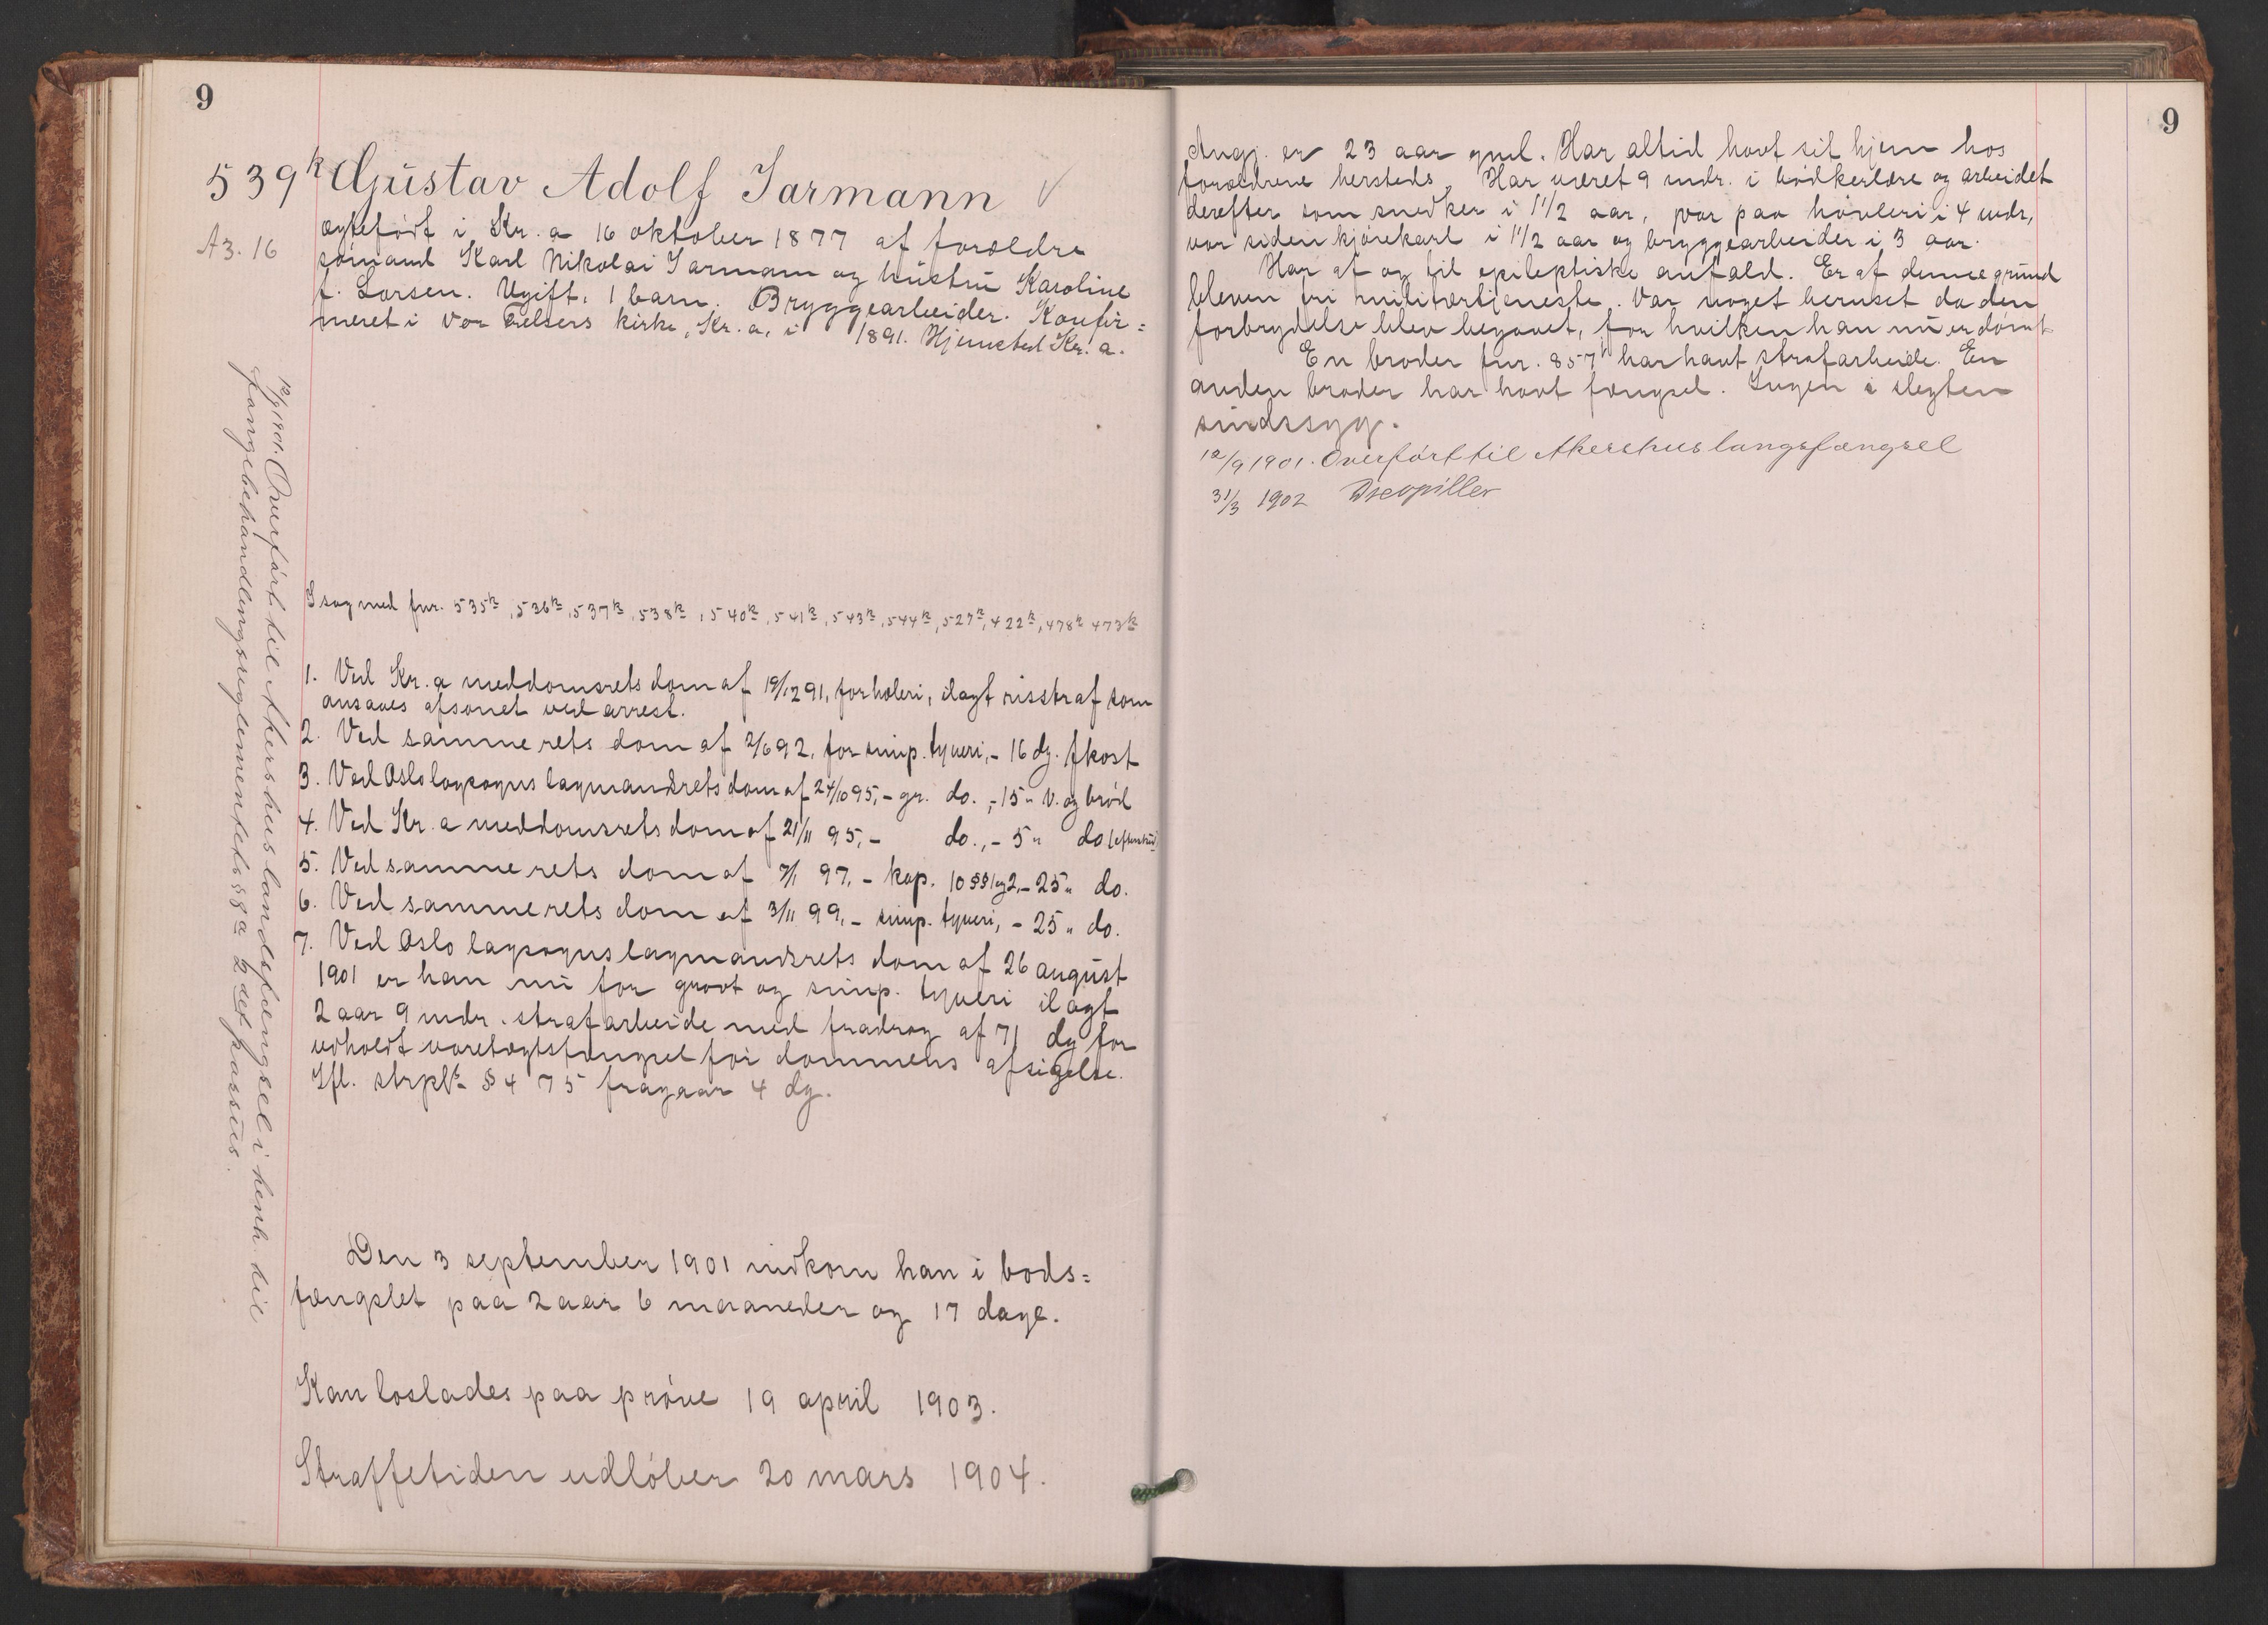 9
539k Gustav Adolf Jarmann
A3. 16
ægteført i Kr.a 16 oktober 1877 af forældre
sømand Karl Nikolai Jarmann og hustru Karoline
f. Larsen. Ugift, 1 barn. Bryggearbeider. Konfir=
meret i Vor Frelsers kirke, Kr.a, i 1891. Hjemsted Kr.a.
12/9 1901. Overført til Akershus landsfængsel i henh. til
fangebehandlingsreglementets § 8 a 2det passus.
I sag med fnr. 535k, 536k, 537k, 538k, 540k, 541k, 543k, 544k, 527k, 422k, 478k 473k
1. Ved Kr.a meddomsrets dom af 19/12 91, for hæleri, ilagt risstraf som
ansaaes afsonet ved arrest.
2. Ved samme rets dom af 2/6 92, for simp. tyveri, - 16 dg. fkost
3. Ved Oslo lagsogns lagmandsrets dom af 24/10 95, - gr. do., - 15 " v. og brød
4. Ved Kr.a meddomsrets dom af 21/11 95, - do., - 5 " do
5. Ved samme rets dom af 7/1 97, - kap. 10 §§ 1 og 2, - 25 " do.
6. Ved samme rets dom af 3/11 99, - simp. tyveri, - 25 " do.
7. Ved Oslo lagsogns lagmandsrets dom af 26 august
1901 er han nu for grovt og simp. tyveri ilagt
2 aar 9 mdr. strafarbeide med fradrag af 71 dg for
udholdt varetægtsfængsel før dommens afsigelse.
Ifl. strpl. § 475 fragaar 4 dg.
Den 3 september 1901 indkom han i bods=
fængslet paa 2 aar 6 maaneder og 17 dage.
Kan løslades paa prøve 19 april 1903.
Straffetiden udløber 20 mars 1904.
9
Angj. er 23 aar gml. Har altid havt sit hjem hos
forældrene hersteds. Har været 9 mdr. i bødkerlære og arbeidet
derefter som snedker i 1 1/2 aar, var paa høvleri i 4 mdr,
var siden kjørekarl i 1 1/2 aar og bryggearbeider i 3 aar.
Har af og til epileptiske anfald. Er af denne grund
bleven fri militærtjeneste. Var noget beruset da den
forbrydelse blev begaaet, for hvilken han nu er dømt
En broder fnr. 857 har havt strafarbeide. En
anden broder har havt fængsel. Ingen i slegten
sindssyg.
12/9 1901. Overført til Akershus langsfængsel
31/3 1902